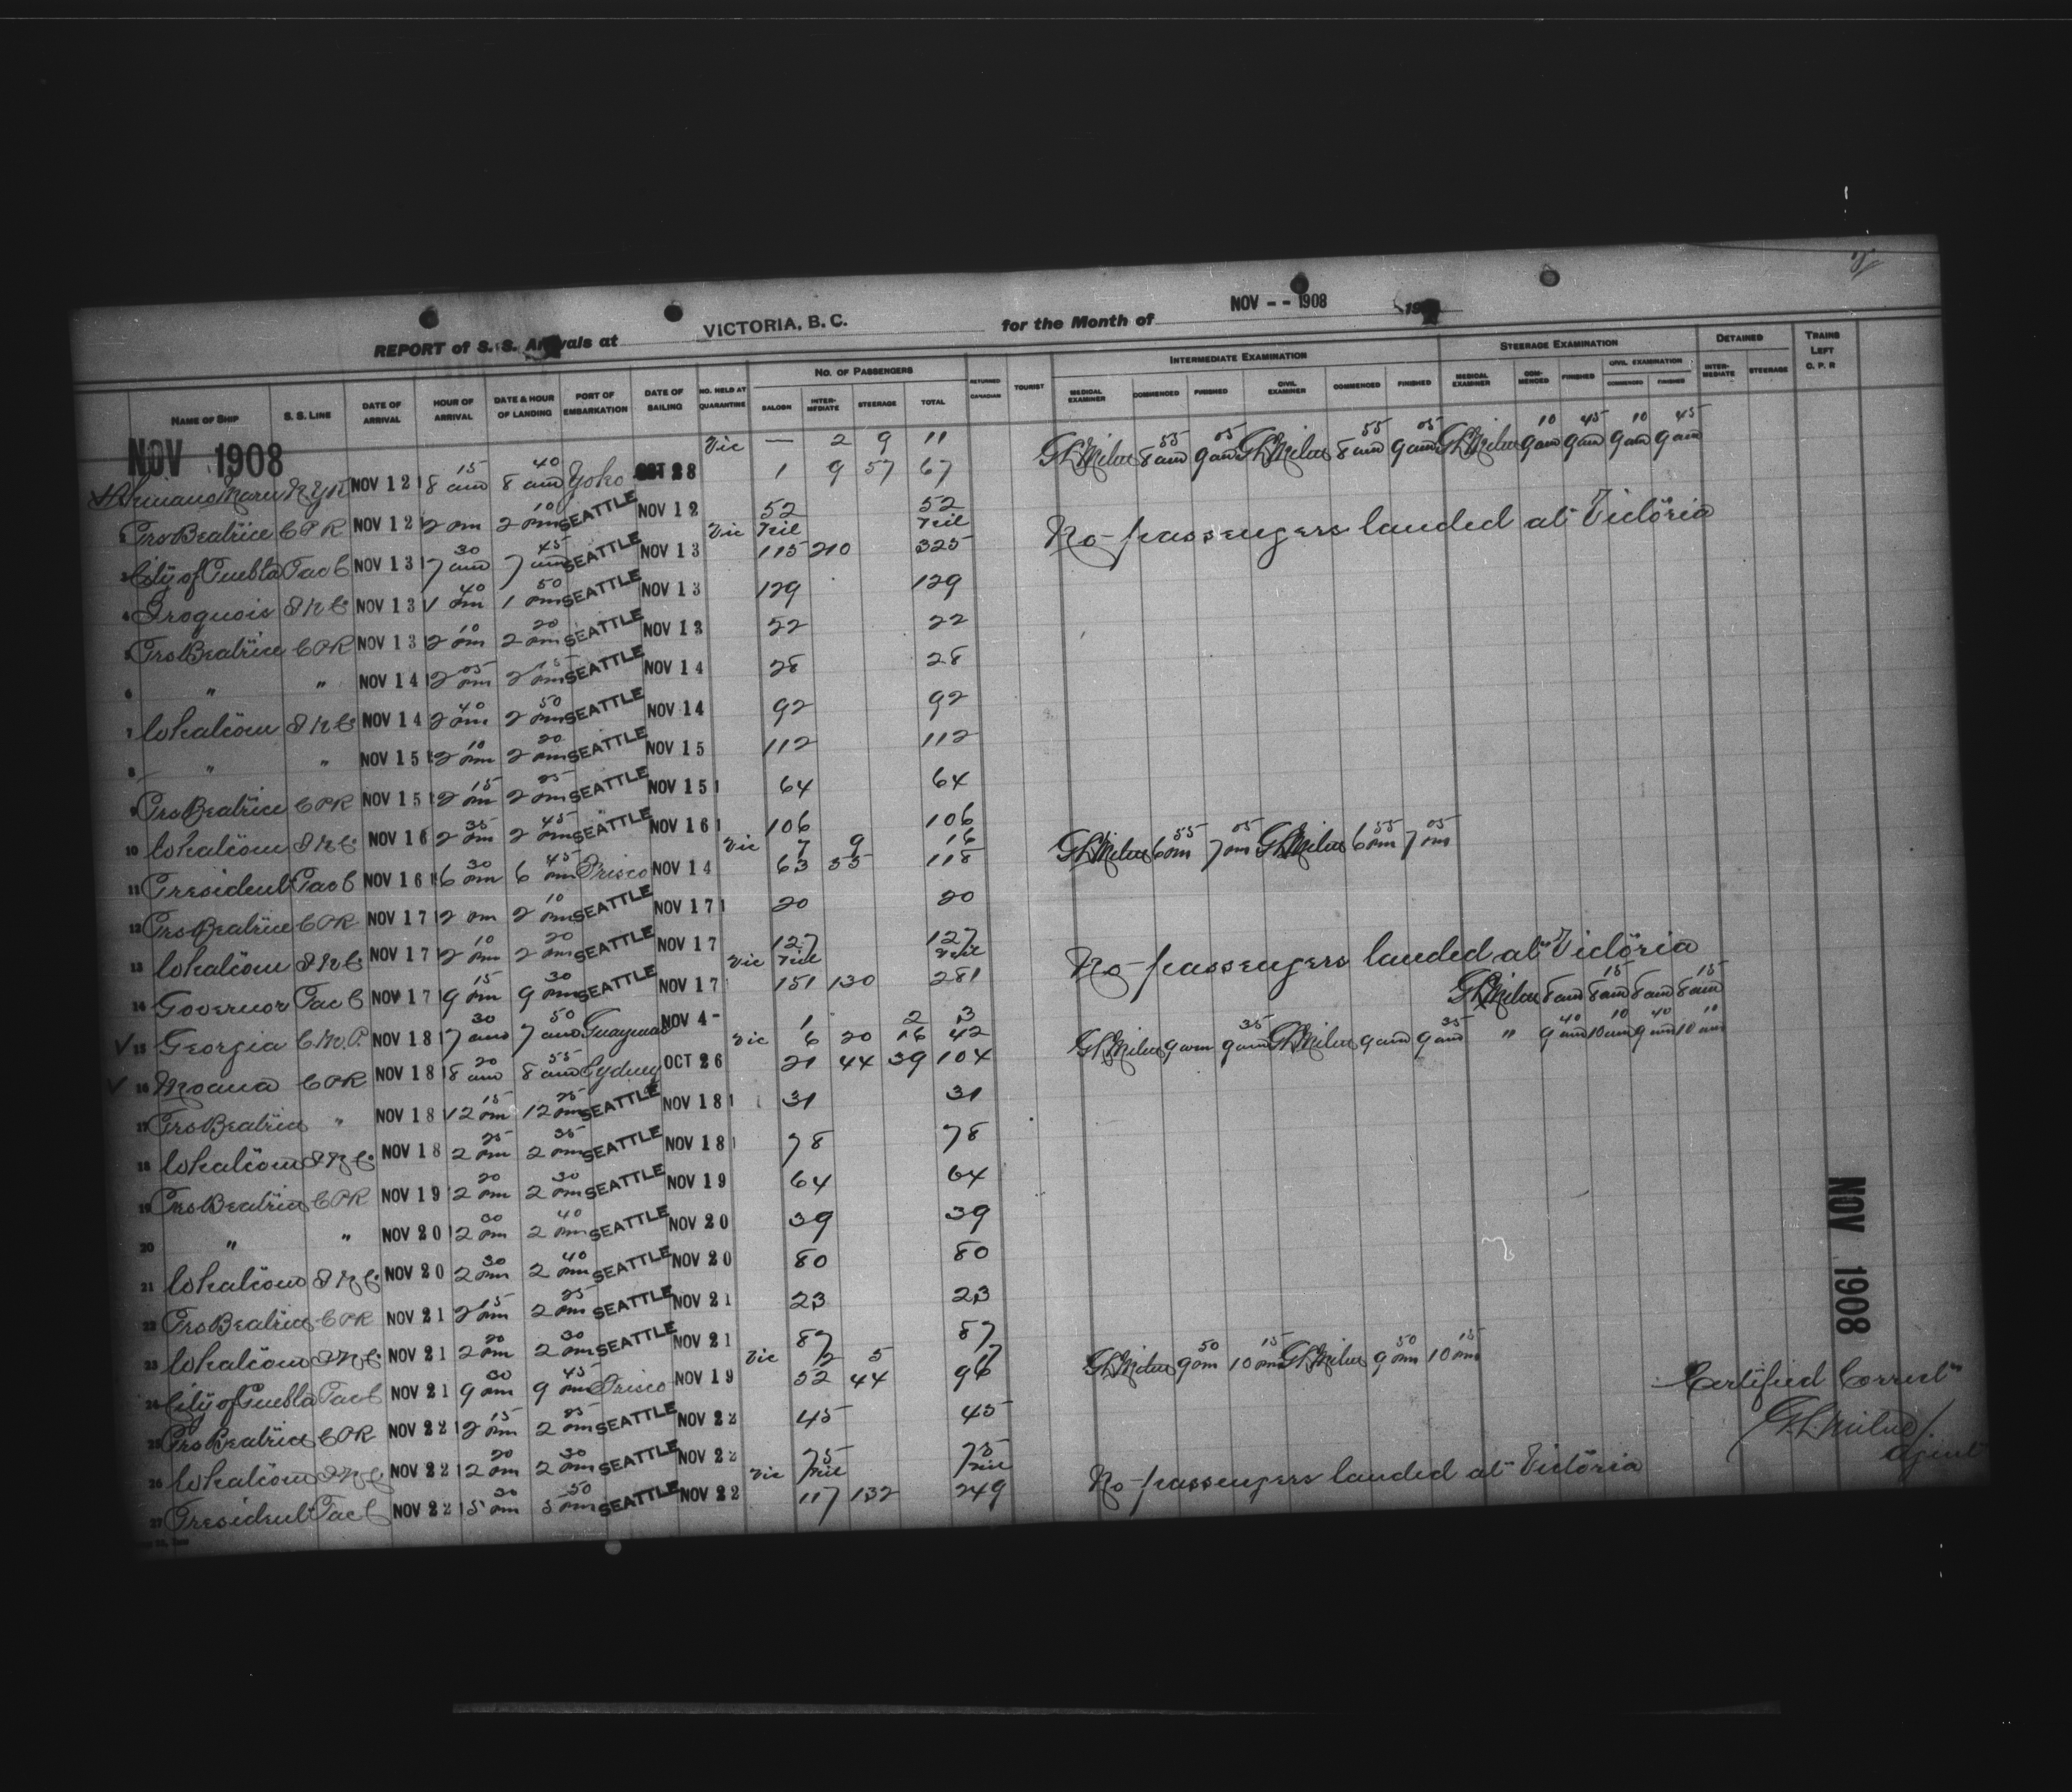 REPORT of S. S. Arrivals at VICTORIA, B. C. for the Month of NOV -- 1908 19
NAME OF SHIP S. S. LINE DATE OF ARRIVAL HOUR OF ARRIVAL DATE & HOUR OF LANDING PORT OF EMBARKATION DATE OF SAILING NO. HELD AT QUARANTINE NO. OF PASSENGERS SALOON INTER-MEDIATE STEERAGE TOTAL RETURNED CANADIAN TOURIST INTERMEDIATE EXAMINATION MEDICAL EXAMINER COMMENCED FINISHED CIVIL EXAMINER COMMENCED FINISHED STEERAGE EXAMINATION MEDICAL EXAMINER COM-MENCED FINISHED CIVIL EXAMINATION COMMENCED FINISHED DETAINED INTER-MEDIATE STEERAGE TRAINS LEFT C. P. R
NOV 1908
Vic — 2 9 11 GLMilne 8 55 am 9 05 am GLMilne 8 55 am 9 05 am GLMilne 9 10 am 9 45 am 9 10 am 9 45 am
Maru NYK NOV 12 8 15 am 8 40 am Yoko OCT 28 1 9 57 67
2 Prs Beatrice CPR NOV 12 2 pm 2 10 pm SEATTLE NOV 12 52 52
Vic nil nil No passengers landed at Victoria
3 City of Puebla Pac C NOV 13 7 30 am 7 45 am SEATTLE NOV 13 115 210 325
4 Iroquois NOV 13 1 40 pm 1 50 pm SEATTLE NOV 13 129 129
5 Prs Beatrice CPR NOV 13 2 10 pm 2 20 pm SEATTLE NOV 13 22 22
6 " " NOV 14 2 05 pm 2 15 pm SEATTLE NOV 14 28 28
7 Whatcom NOV 14 2 40 pm 2 50 pm SEATTLE NOV 14 92 92
8 " " NOV 15 2 10 pm 2 20 pm SEATTLE NOV 15 112 112
9 Prs Beatrice CPR NOV 15 2 15 pm 2 25 pm SEATTLE NOV 15 64 64
10 Whatcom NOV 16 2 35 pm 2 45 pm SEATTLE NOV 16 106 106
Vic 7 9 16 GLMilne 6 55 pm 7 05 pm GLMilne 6 55 pm 7 05 pm
11 President Pac C NOV 16 6 30 pm 6 45 pm Frisco NOV 14 63 55 118
12 Prs Beatrice CPR NOV 17 2 pm 2 10 pm SEATTLE NOV 17 20 20
13 Whatcom NOV 17 2 10 pm 2 20 pm SEATTLE NOV 17 127 127
Vic nil nil No passengers landed at Victoria
14 Governor Pac C NOV 17 9 15 pm 9 30 pm SEATTLE NOV 17 151 130 281
GLMilne 8 am 8 15 am 8 am 8 15 am
15 Georgia NOV 18 7 30 am 7 50 am Guaymas NOV 4 - 1 2 3
Vic 6 20 16 42 GLMilne 9 am 9 35 am GLMilne 9 am 9 35 am " 9 40 am 10 10 am 9 40 am 10 10 am
16 Moana CPR NOV 18 8 20 am 8 55 am Sydney OCT 26 21 44 39 104
17 Prs Beatrice " NOV 18 12 15 pm 12 25 pm SEATTLE NOV 18 31 31
18 Whatcom NOV 18 2 25 pm 2 35 pm SEATTLE NOV 18 78 78
19 Prs Beatrice CPR NOV 19 2 20 pm 2 30 pm SEATTLE NOV 19 64 64
20 " " NOV 20 2 30 pm 2 40 pm SEATTLE NOV 20 39 39
21 Whatcom NOV 20 2 30 pm 2 40 pm SEATTLE NOV 20 80 80
22 Prs Beatrice CPR NOV 21 2 15 pm 2 25 pm SEATTLE NOV 21 23 23
23 Whatcom NOV 21 2 20 pm 2 30 pm SEATTLE NOV 21 87 87
Vic 2 5 7 GLMilne 9 50 pm 10 15 pm GLMilne 9 50 pm 10 15 pm
24 City of Puebla Pac C NOV 21 9 30 pm 9 45 pm Frisco NOV 19 52 44 96
25 Prs Beatrice CPR NOV 22 2 15 pm 2 25 pm SEATTLE NOV 22 45 45
26 Whatcom NOV 22 2 20 pm 2 30 pm SEATTLE NOV 22 75 75
Vic nil nil No passengers landed at Victoria
27 President Pac C NOV 22 5 30 pm 5 50 pm SEATTLE NOV 22 117 132 249
NOV 1908
Certified Correct
G.L. Milne
Agent